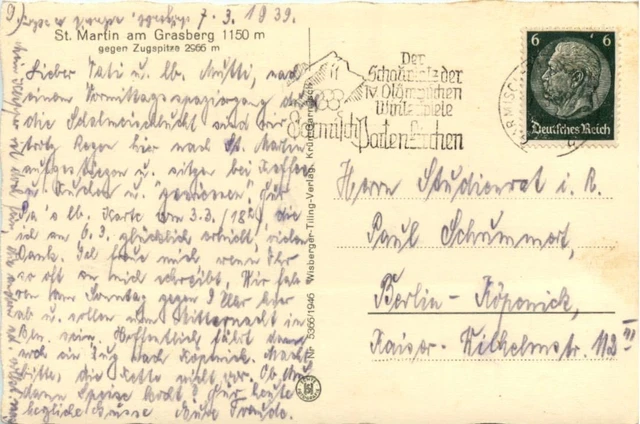 7.3.1939.
St. Martin am Grasberg 1150 m
gegen Zugspitze 2966 m
Lieber Vati u. lb. Mutti, nach
einem Vormittagsspaziergang durch
die Schalmeischlucht sind wir
trotz Regen hier nach St. Martin
aufgestiegen u. sitzen bei Kaffee
u. Kuchen u. "geniessen". Für
Va's lb. Karte vom 3.3. (18 h) die
ich am 6.3. glücklich erhielt, vielen
Dank. Ich freue mich wenn Ihr
so oft an mich schreibt. Wir fah-
ren am Sonntag gegen Uhr hier
ab u. sollen um Mitternacht in
Bln. sein. Hoffentlich fährt dann
noch ein Zug nach Köpenick. Macht
bitte die Kette nicht vor. Ob Mutti
dann Speise kocht? Für heute
herzliche Grüsse Eure Traude.
Wisberger-Tiling-Verlag, Krün
Nr. 5366/1946
Der
Schauplatz der
IV. Olympischen
Winterspiele
Garmisch-Partenkirchen
6 6
Deutsches Reich
GARMISCH
Herrn Studienrat i. R.
Paul Schummort,
Berlin-Köpenick,
Kaiser-Wilhelmstr. 112 III